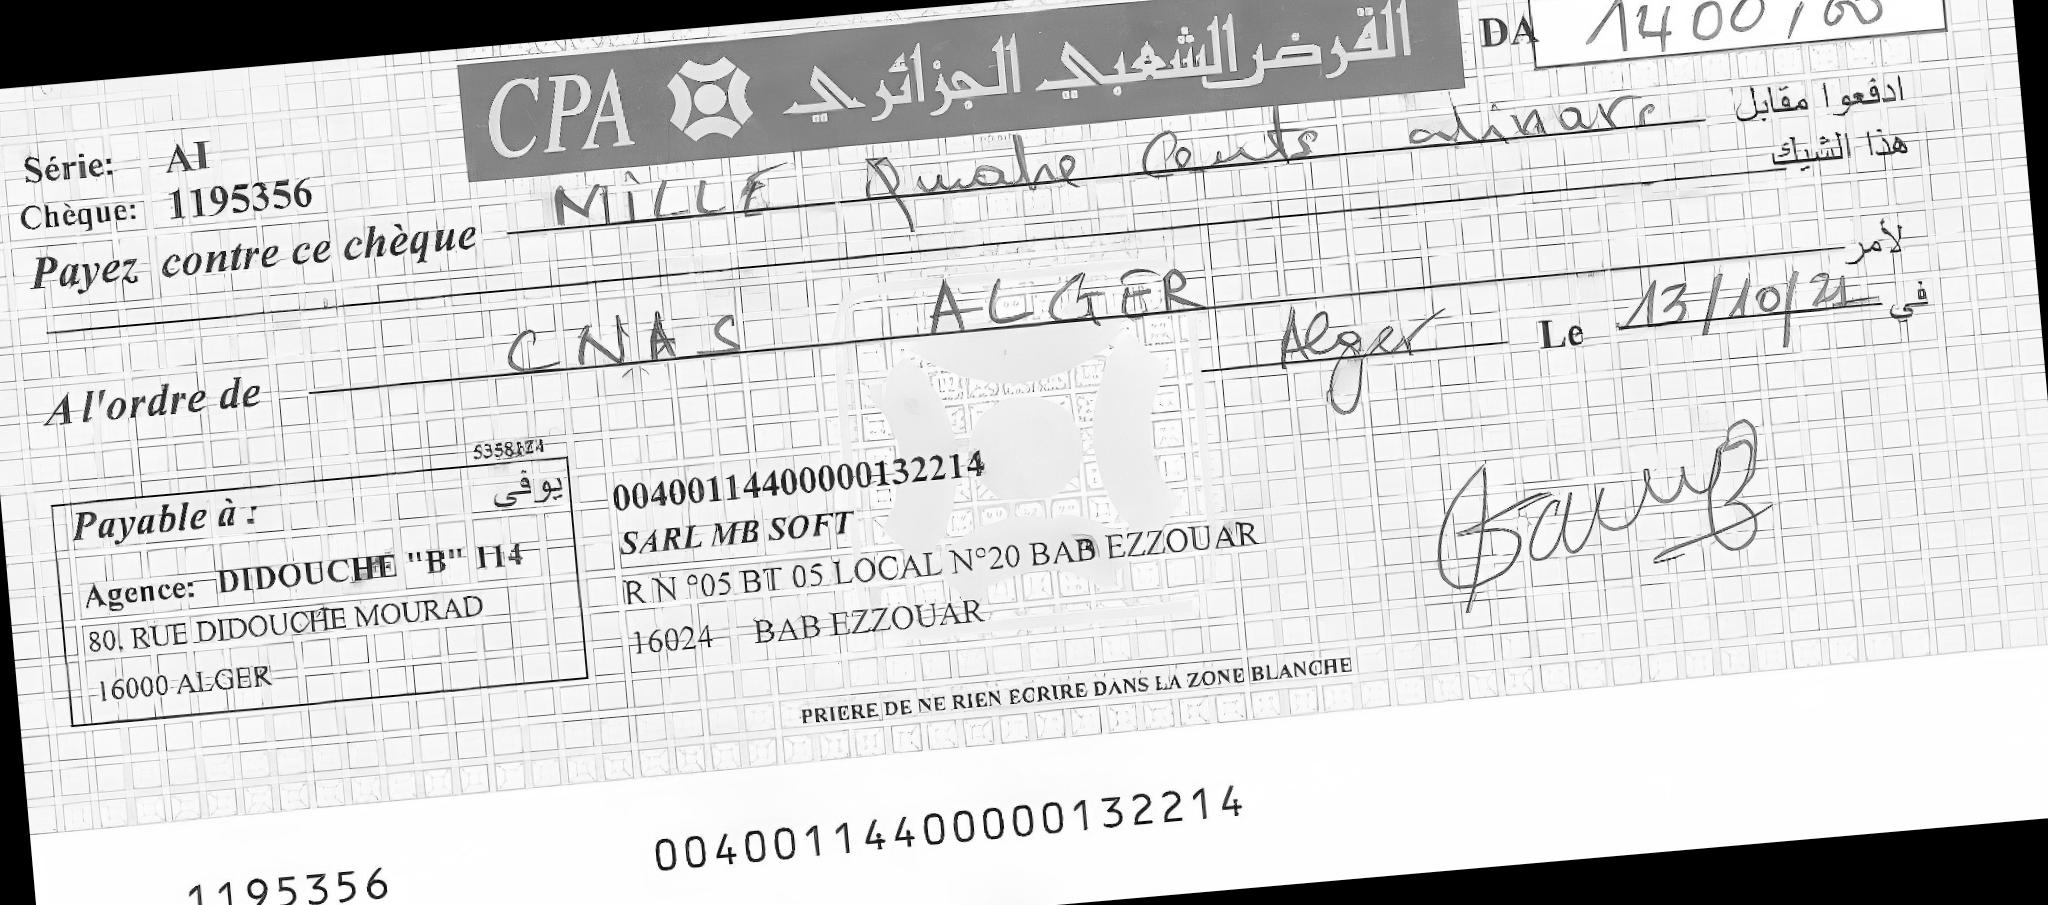 CPA القرض الشعبي الجزائري
DA 1400/00
Série: AI
Chèque: 1195356
Payez contre ce chèque MILLE Quatre Cents dinars ادفعوا مقابل هذا الشيك
A l'ordre de CNAS ALGER لأمر
Alger Le 13/10/21 في
Payable à : يوفى
Agence: DIDOUCHE "B" 114
80, RUE DIDOUCHE MOURAD
16000 ALGER
00400114400000132214
SARL MB SOFT
R N °05 BT 05 LOCAL N°20 BAB EZZOUAR
16024 BAB EZZOUAR
PRIERE DE NE RIEN ECRIRE DANS LA ZONE BLANCHE
1195356 00400114400000132214